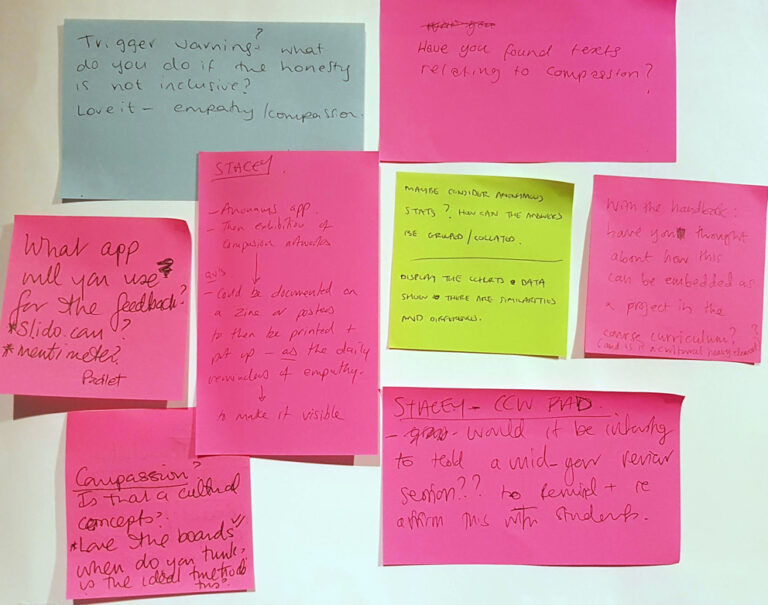 Trigger warning? what
do you do if the honesty
is not inclusive?
Love it – empathy/compassion.
Have you found texts
relating to compassion?
STACEY.
– Anonymous app.
– Then exhibition of
compassion artworks
– Could be documented on
a zine or posters
to then be printed +
put up – as the daily
reminders of empathy.
to make it visible
MAYBE CONSIDER ANONYMOUS
STATS? HOW CAN THE ANSWERS
BE GROUPED/COLLATED.
DISPLAY THE CHARTS & DATA
SHOW THERE ARE SIMILARITIES
AND DIFFERENCES.
With the handbook:
have you thought
about how this
can be embedded as
a project in the
course curriculum?
(and is it a cultural
What app
will you use
for the feedback?
*slido.com?
*mentimeter
Padlet
Compassion?
Is that a cultural
concepts?
*Love the boards
when do you think
is the ideal
this?
STACEY – CCW PAD.
– Would it be interesting
to hold a mid-year review
session?? to remind + re
affirm this with students.